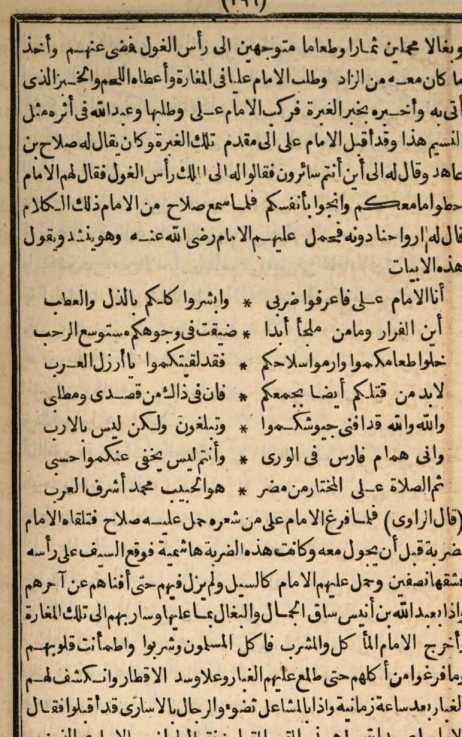 (٢٩٦)
وبغالا محملين ثمارا وطعاما متوجهين الى رأس الغول فضى عنهم وأخذ
ما كان معه من الزاد وطلب الامام عليا فى المغارة وأعطاه اللحم والخبز الذى
أتى به وأخبره بخبر الغبرة فركب الامام على وطلبها وعبد الله فى أثره مثل
النسيم هذا وقد أقبل الامام على الى مقدم تلك الغبرة وكان يقال له صلاح بن
عاهد وقال له الى أين أنتم سائرون فقالوا له الى الملك رأس الغول فقال لهم الامام
حطوا ما معكم وانجوا بأنفسكم فلما سمع صلاح من الامام ذلك الكلام
قال له أرواحنا دونه فحمل عليهم الامام رضى الله عنه وهو ينشد ويقول
هذه الابيات
أنا الامام على فاعرفوا ضربى * وابشروا كلكم بالذل والعطب
أين الفرار ومامن ملجأ أبدا * ضيقت فى وجوهكم مستوسع الرحب
خلوا طعامكموا وارموا سلاحكم * فقد لقيتكموا يا أرزل العرب
لابد من قتلكم أيضا بجمعكم * فان فى ذاك من قصدى ومطلبى
والله والله قد افنى جيوشكموا * وتبلغون ولكن ليس بالارب
وانى همام فارس فى الورى * وأنتم ليس يخفى عنكموا حسبى
ثم الصلاة على المختار من مضر * هو الحبيب محمد أشرف العرب
(قال الراوى) فلما فرغ الامام على من شعره حمل عليه صلاح فتلقاه الامام
بضربة قبل أن يجول معه وكانت هذه الضربة هاشمية فوقع السيف على رأسه
فشقها نصفين وحمل عليهم الامام كالسيل ولم يزل فيهم حتى أفناهم عن آخرهم
واذا بعبد الله بن أنيس ساق الجمال والبغال بما عليها وسار بهم الى تلك المغارة
وأخرج الامام المأكل والمشرب فأكل المسلمون وشربوا واطمأنت قلوبهم
وما فرغوا من أكلهم حتى طلع عليهم الغبار وعلا وسد الاقطار وانكشف لهم
الغبار بعد ساعة زمانية واذا بالمشاعل تضوء والرحال بالاسارى قد أقبلوا فقال